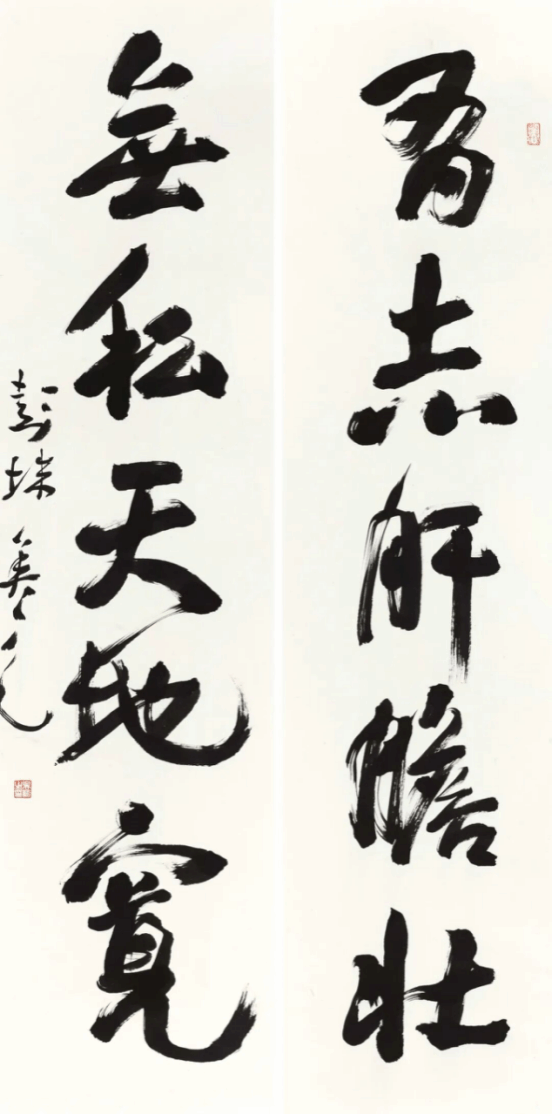 有志肝膽壯
無私天地寬